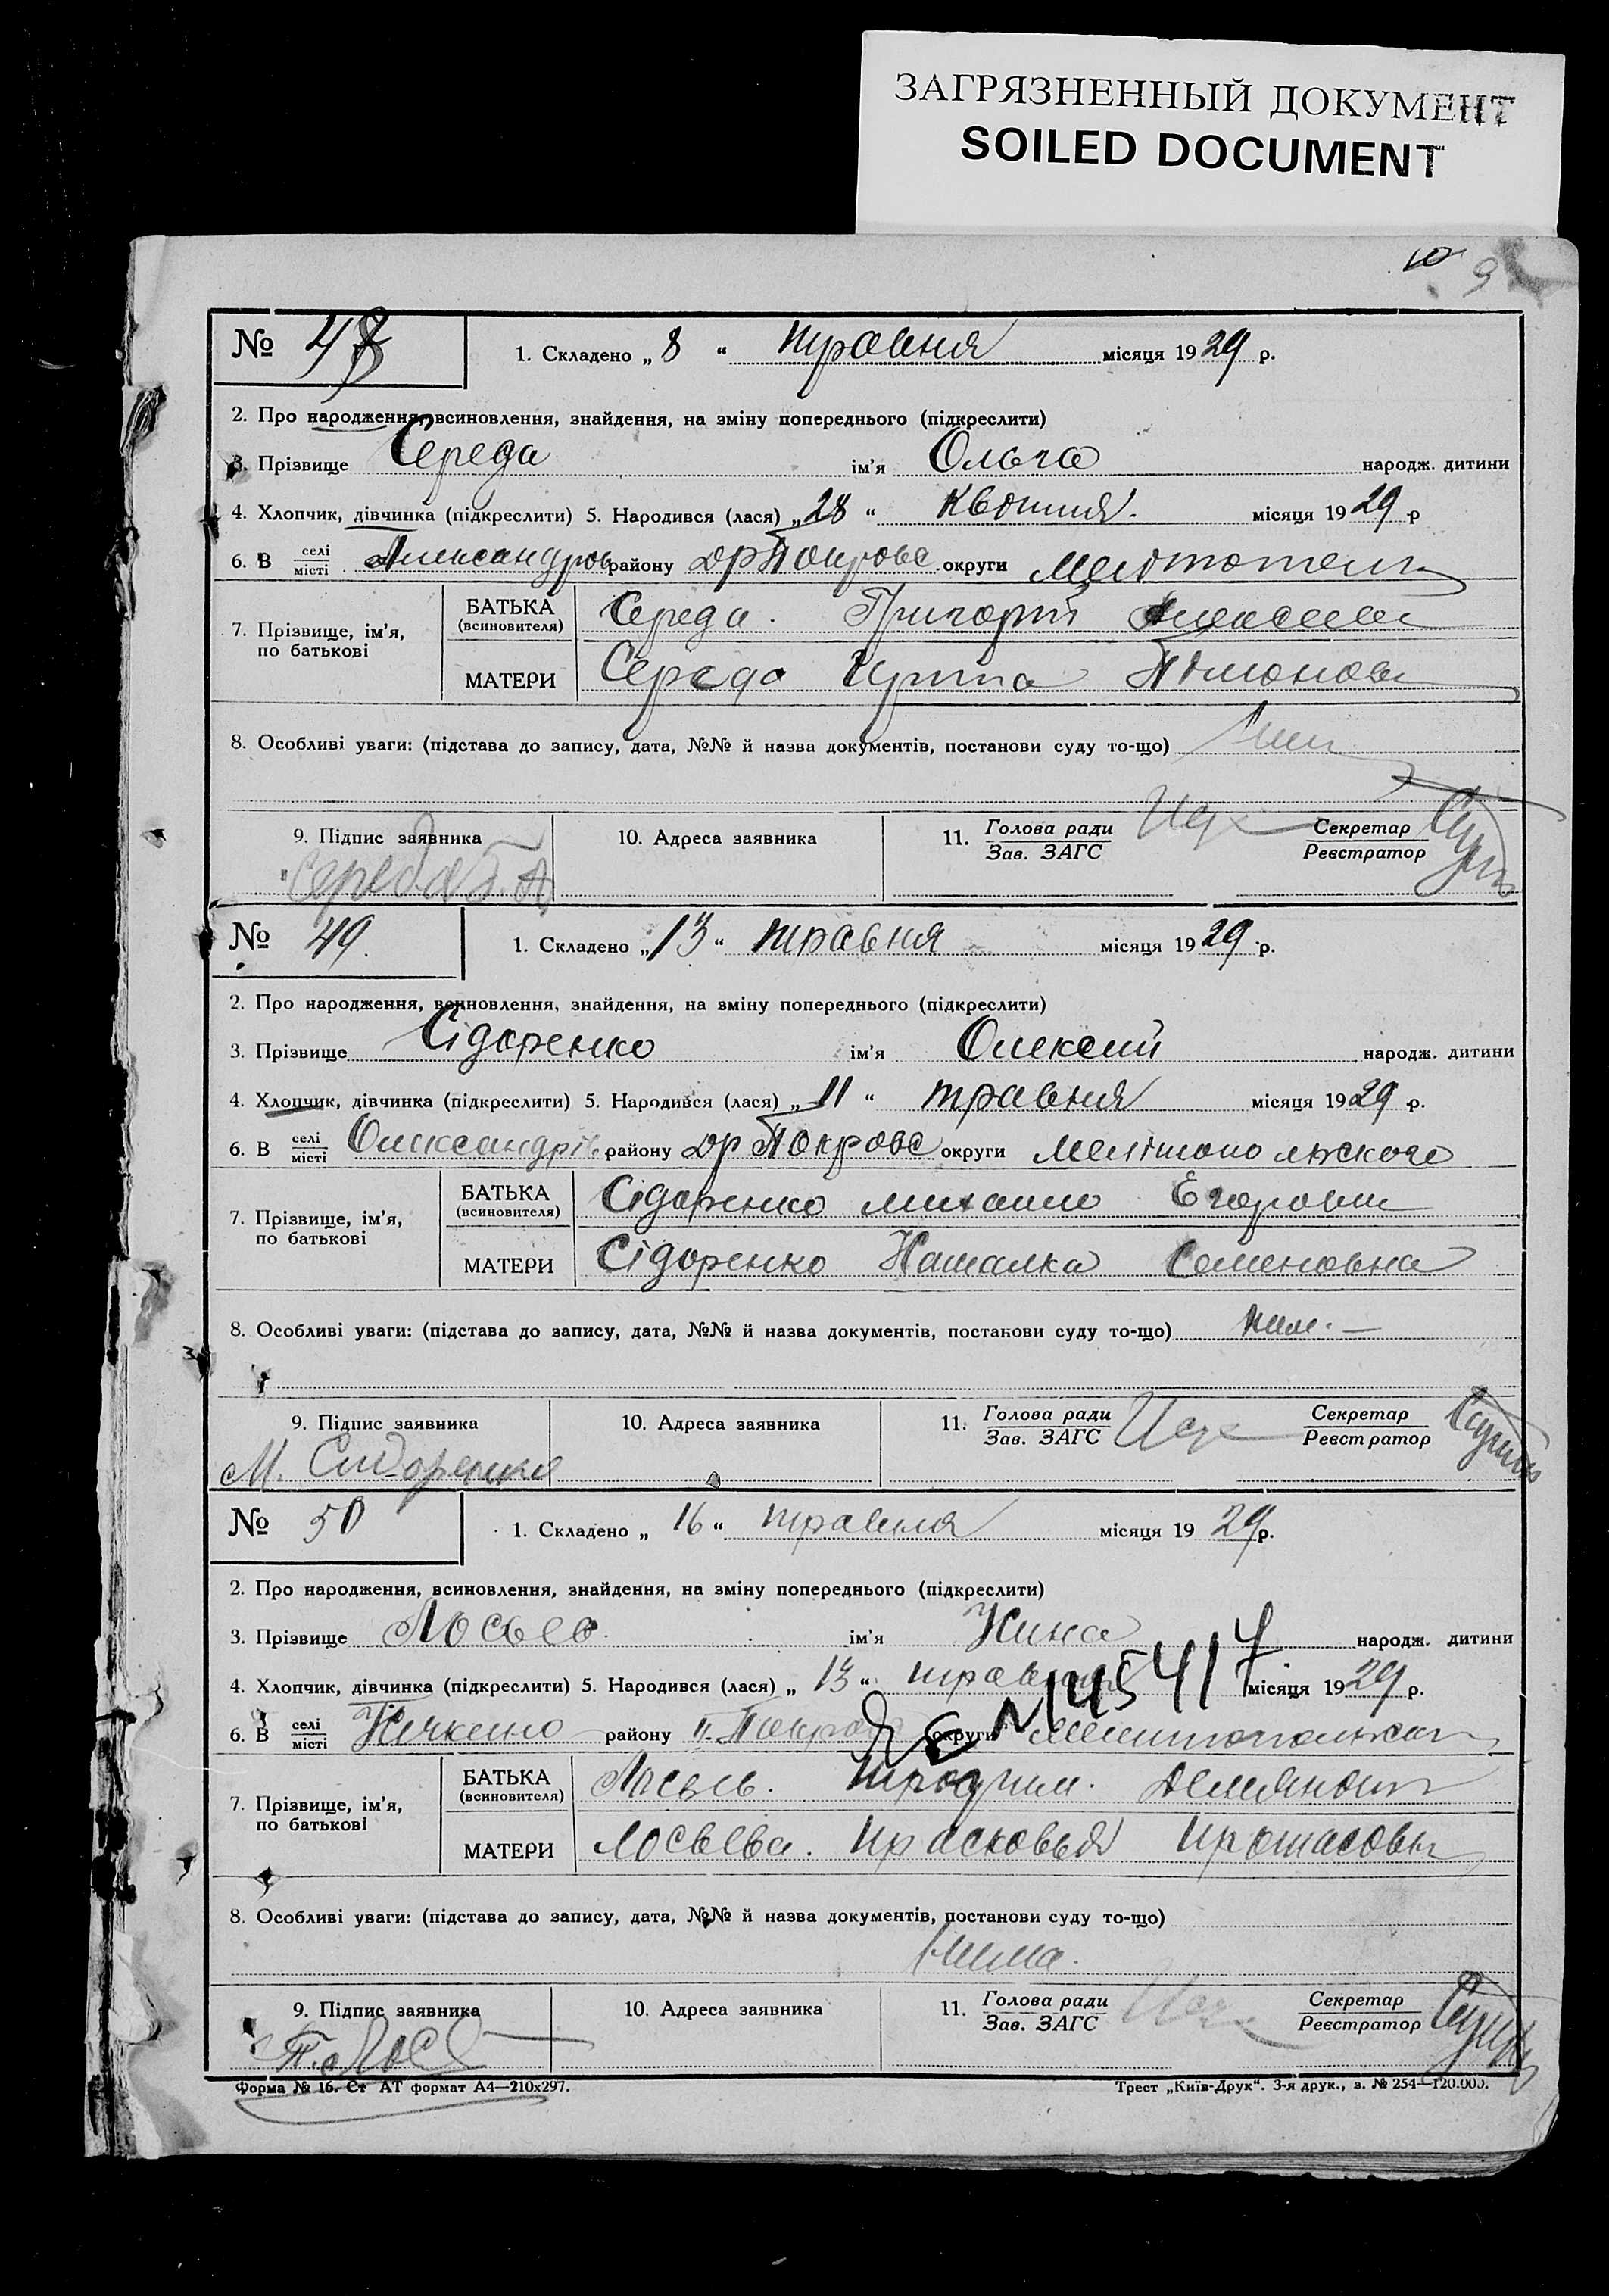 ЗАГРЯЗНЕННЫЙ ДОКУМЕНТ
SOILED DOCUMENT
10 9
№ 48 1. Складено „ 8 “ травня місяця 1929 р.
2. Про народження, всиновлення, знайдення, на зміну попереднього (підкреслити)
3. Прізвище Середа ім'я Ольга народж. дитини
4. Хлопчик, дівчинка (підкреслити) 5. Народився (лася) „ 28 “ Квотня місяця 1929 р
6. В селі місті Александров району ДрПокровс округи
7. Прізвище, ім'я, по батькові
БАТЬКА (всиновителя) Середа Григорий
МАТЕРИ Середа
8. Особливі уваги: (підстава до запису, дата, №№ й назва документів, постанови суду то-що)
9. Підпис заявника 10. Адреса заявника 11. Голова ради Зав. ЗАГС Секретар Реєстратор
Середа
№ 49. 1. Складено „ 13 “ травня місяця 1929 р.
2. Про народження, всиновлення, знайдення, на зміну попереднього (підкреслити)
3. Прізвище Сідоренко ім'я Олексій народж. дитини
4. Хлопчик, дівчинка (підкреслити) 5. Народився (лася) „ 11 “ травня місяця 1929 р.
6. В селі місті Олександрів району Др Покровс округи Мелітопольского
7. Прізвище, ім'я, по батькові
БАТЬКА (всиновителя) Сідоренко Михаило Егорович
МАТЕРИ Сідоренко Наталка Семеновна
8. Особливі уваги: (підстава до запису, дата, №№ й назва документів, постанови суду то-що) нем. —
9. Підпис заявника 10. Адреса заявника 11. Голова ради Зав. ЗАГС Секретар Реєстратор
М. Сидоренко
№ 50 1. Складено „ 16 “ травня місяця 1929 р.
2. Про народження, всиновлення, знайдення, на зміну попереднього (підкреслити)
3. Прізвище Лосьев. ім'я Нина народж. дитини
4. Хлопчик, дівчинка (підкреслити) 5. Народився (лася) „ 13 “ травня місяця 1929 р.
6. В селі місті району округи
7. Прізвище, ім'я, по батькові
БАТЬКА (всиновителя) Лосьев. Трофим. Демянович
МАТЕРИ Лосьева. Прасковья Протасовн
8. Особливі уваги: (підстава до запису, дата, №№ й назва документів, постанови суду то-що)
Нема.
9. Підпис заявника 10. Адреса заявника 11. Голова ради Зав. ЗАГС Секретар Реєстратор
Форма № 16. Ст АТ формат А4—210х297. Трест „Київ-Друк“. 3-я друк., з. № 254—120.000.